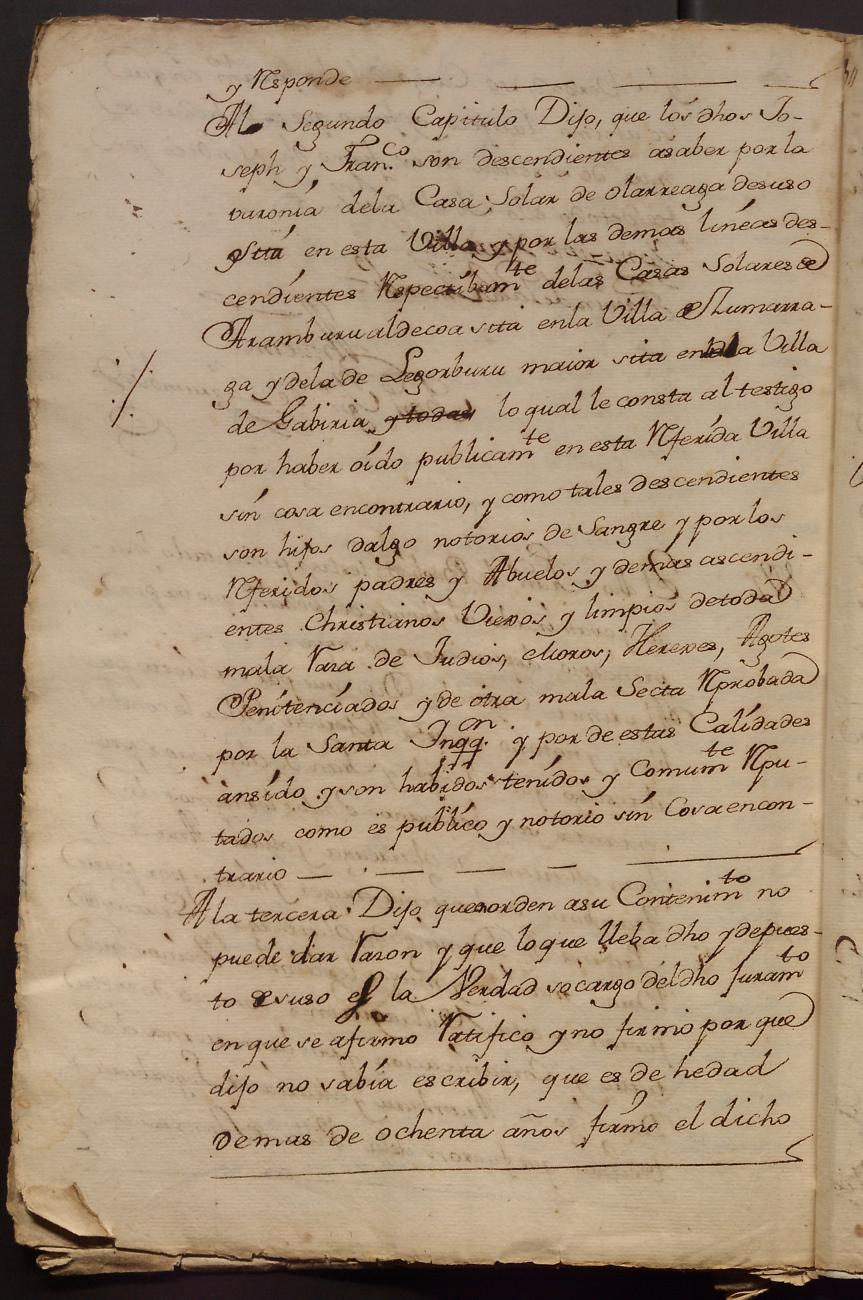 y Responde
Al Segundo Capitulo Dijo, que los dhos Jo-
seph y Fran.co son descendientes asaber por la
varonia dela Casa Solar de olarreaga desuso
sita en esta Villa y por las demas lineas des-
cendientes Respectibamte delas Casas Solares de
Aramburu aldecoa sita enla Villa de Zumarra-
ga y dela de Legorburu maior sita en la Villa
de Gabiria y todas lo qual le consta al testigo
por haber oido publicamte en esta Referida Villa
sin cosa encontrario, y como tales descendientes
son hijos dalgo notorios de Sangre y por los
Referidos padres y Abuelos y demas ascendi-
entes Christianos Viejos y limpios detoda
mala Raza de Judios, Moros, Herejes, Agotes
Penitenciados y de otra mala Secta Reprobada
por la Santa Inqq.on y por de estas Calidades
ansido y son habidos tenidos y Comunmte Repu-
tados como es publico y notorio sin Cosa encon-
trario
A la tercera Dijo que en orden asu Contenimto no
puede dar Razon y que lo que lleba dho y depues-
to desuso es la Verdad so cargo del dho Juramto
en que se afirmo Ratifico y no firmo por que
dijo no sabia escribir, que es de hedad
de mas de ochenta años firmo el dicho